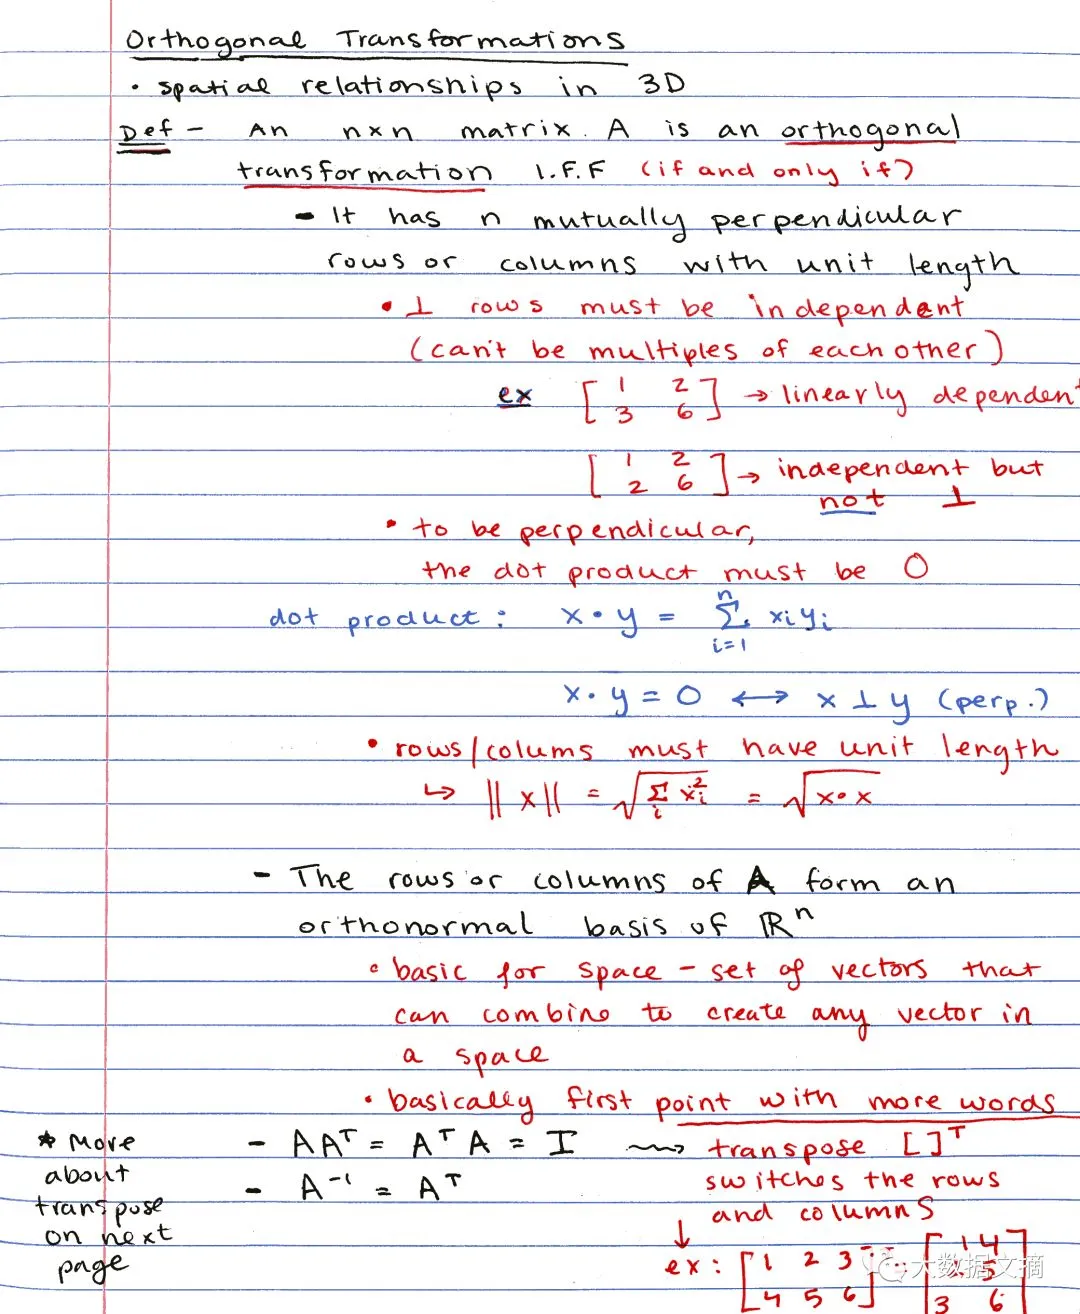 Orthogonal Transformations
• spatial relationships in 3D
Def - An n×n matrix A is an orthogonal
transformation I.F.F (if and only if)
- It has n mutually perpendicular
rows or columns with unit length
• ⊥ rows must be independent
(can't be multiples of each other)
ex [1 2
3 6] → linearly dependent
[1 2
2 6] → independent but
not ⊥
• to be perpendicular,
the dot product must be 0
dot product: x • y = Σ_{i=1}^{n} xᵢyᵢ
x • y = 0 ↔ x ⊥ y (perp.)
• rows/colums must have unit length
↳ ||x|| = √(Σᵢ xᵢ²) = √(x•x)
- The rows or columns of A form an
orthonormal basis of ℝⁿ
• basic for space - set of vectors that
can combine to create any vector in
a space
• basically first point with more words
- AAᵀ = AᵀA = I ⇝ transpose [ ]ᵀ
switches the rows
and columns
- A⁻¹ = Aᵀ
* More
about
transpose
on next
page
↓
ex: [1 2 3
4 5 6]ᵀ = [1 4
5
3 6]
大数据文摘